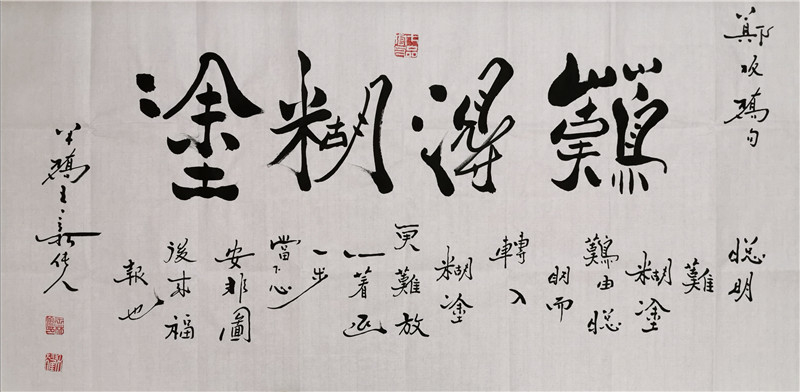 鄭板橋句
難得糊塗
聰明
難
糊塗
難由聰
明而
轉入
糊塗
更難放
一著退
一步
當下心
安非圖
後来福
報也